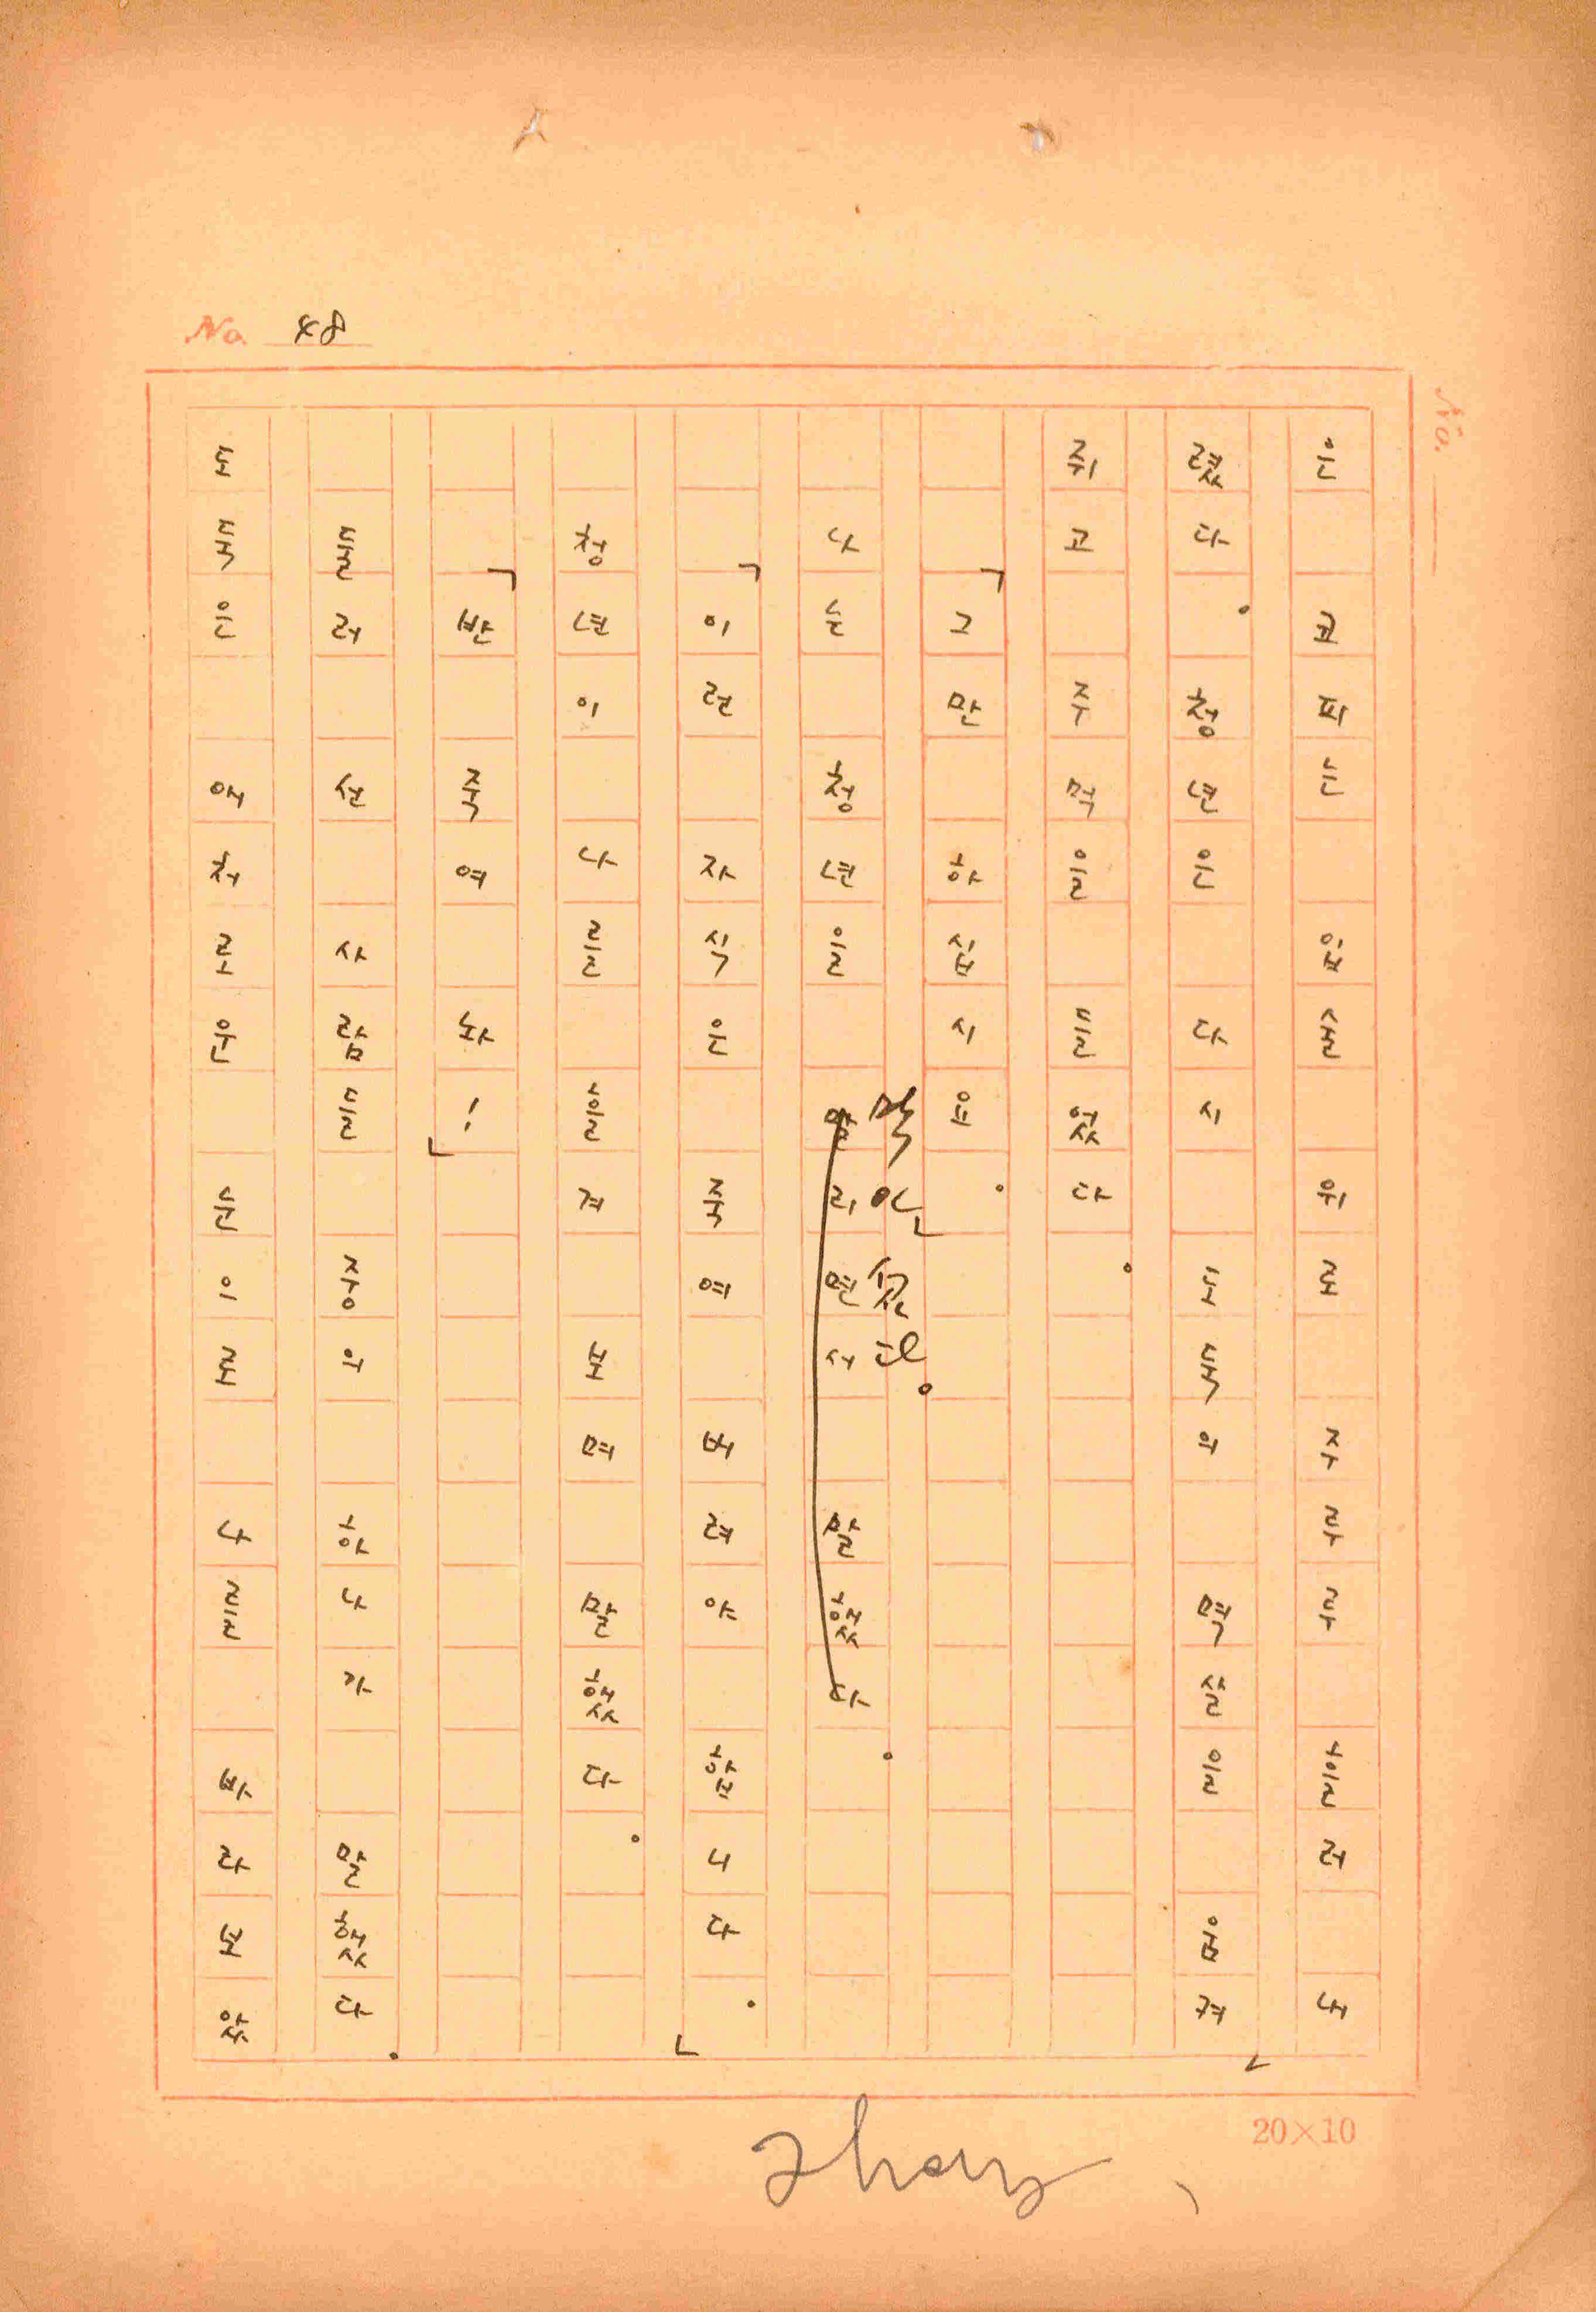 No. 48
No.
은 코피는 입술 위로 주루루 흘러 내
렸다. 청년은 다시 도둑의 멱살을 움켜
쥐고 주먹을 들었다.
「그만 하십시요.」
막아 섰다.
나는 청년을 말리면서 말했다.
「이런 자식은 죽여 버려야 합니다.」
청년이 나를 흘겨 보며 말했다.
「반 죽여 놔!」
둘러 선 사람들 중의 하나가 말했다.
도둑은 애처로운 눈으로 나를 바라보았
20×10